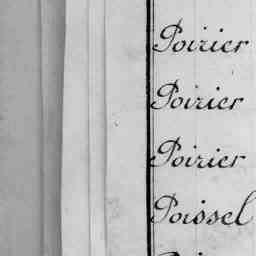 Poirier
Poirier
Poirier
Poissel